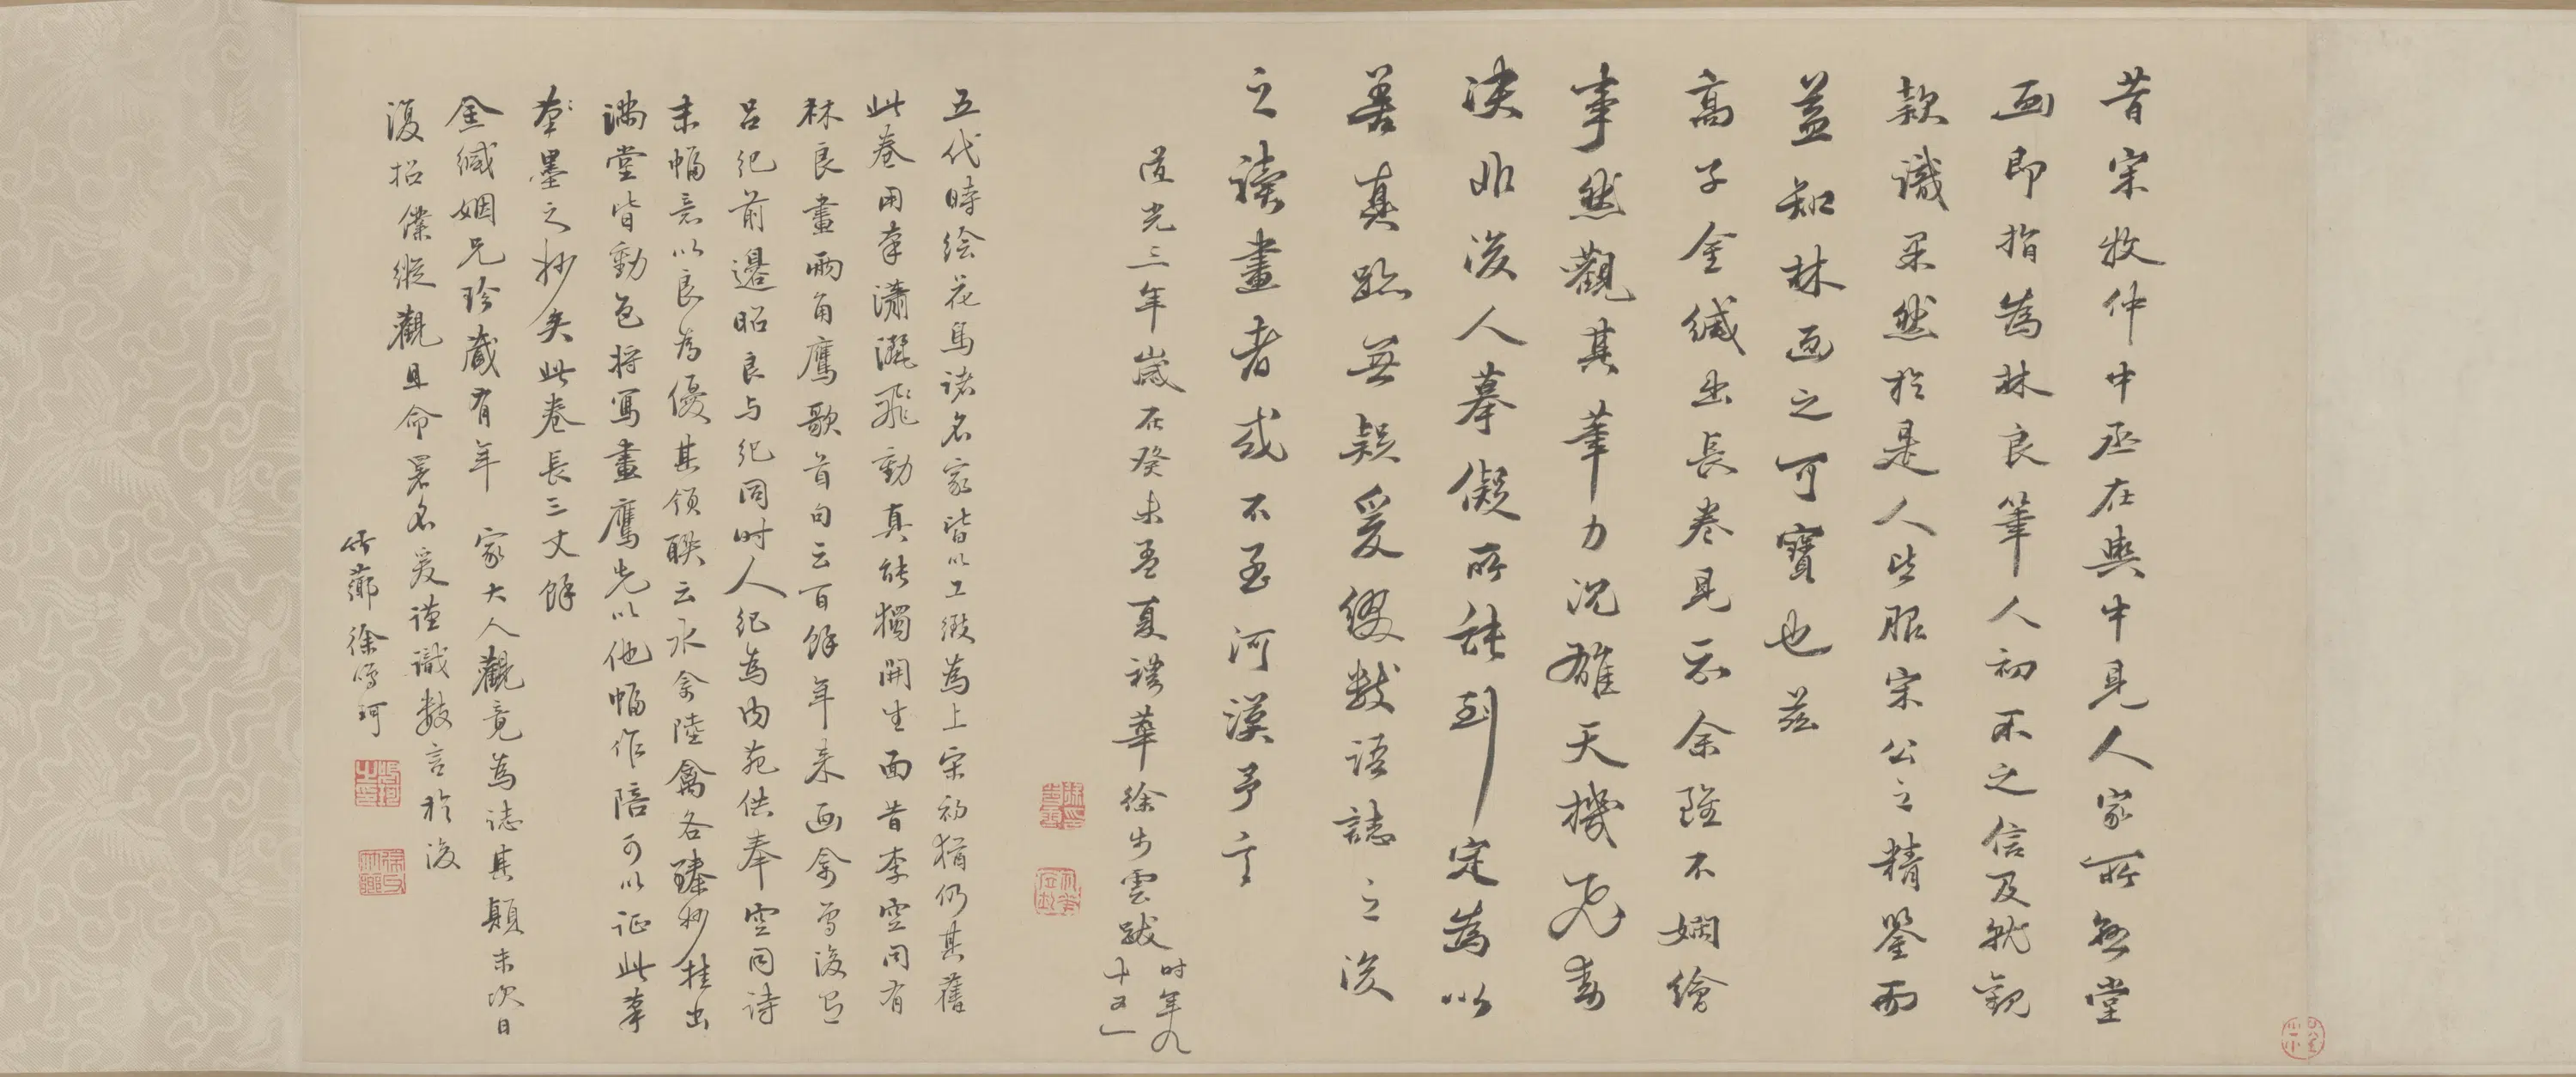 昔宋牧仲中丞在輿中見人家所懸堂
画即指為林良筆人初不之信及就観
款識果然於是人皆服宋公之精鑒而
益知林画之可寶也茲
高子金緘出長卷見示余雖不嫻繪
事然觀其筆力沉雄天機飛動
決非後人摹儗所能到定為以
善真跡無疑爰綴數語誌之後
之讀畫者或不至河漢予言
道光三年歲在癸未孟夏禊華徐步雲跋
时年九
十又一
五代時绘花鳥诸名家皆以工緻為上宋初猶仍其舊
此卷用筆瀟灑飛動真能獨開生面昔李空同有
林良畫兩角鷹歌首句云百餘年来画禽鸟後有
呂紀前邊昭良与紀同时人紀為内苑供奉空同诗
末幅意以良為優其領聯云水禽陸禽各臻妙挂出
满堂皆動色将寫畫鷹先以他幅作陪可以证此筆
筆墨之妙矣此卷長三丈餘
金緘姻兄珍蔵有年 家大人觀竟為誌其顛末次日
復招僕縱觀且命署名爰谨識数言於後
竹薌徐鸣珂